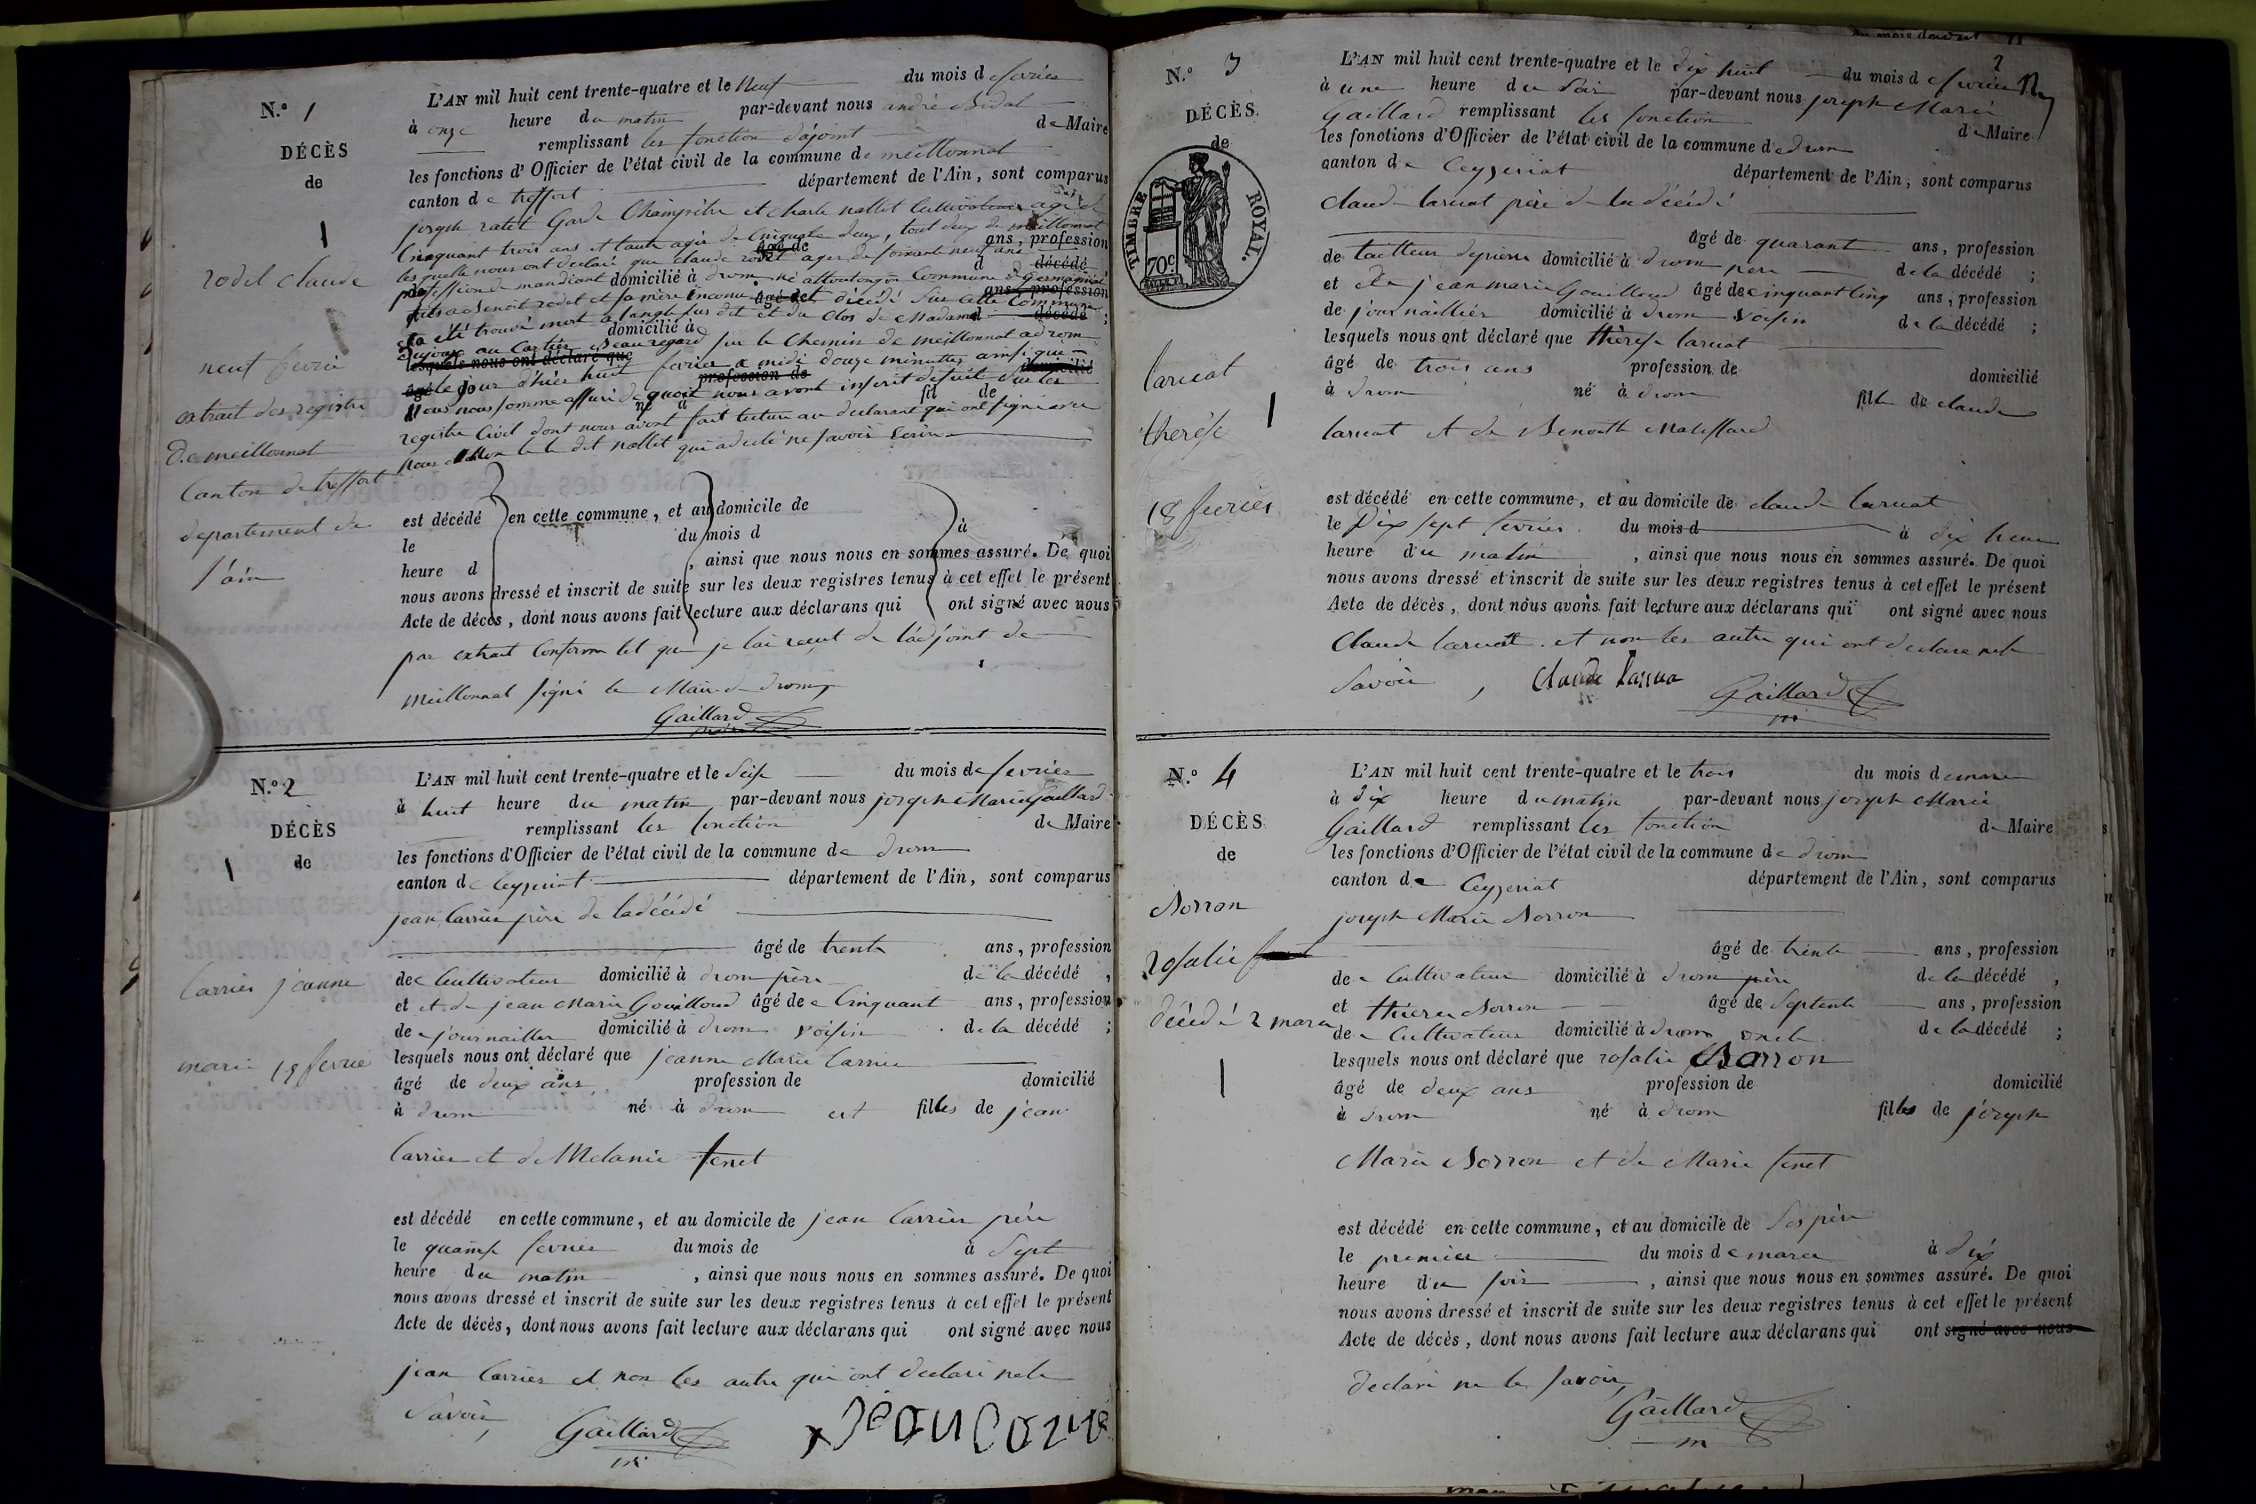 N.º 1
DÉCÈS
de
1
rodet claude
neuf fevrier
extrait des registre
De meillonnat
Canton de treffort
departement de
l'ain
L'AN mil huit cent trente-quatre et le Neuf du mois d fevrier
à onze heure du matin par-devant nous andré Bidal
remplissant les fonction d'ajoint de Maire
les fonctions d'Officier de l'état civil de la commune de meillonnat
canton de treffort département de l'Ain, sont comparus
joseph ratet Garde Champêtre et charle nallet Cultivateur agé de
Cinquant trois ans et l'autre agé de Cinquante deux, tout deux de meillonnat
âgé de ans, profession
les quelle nous ont declaré que claude rodet ager de soixante neuf ans
d décédé
profession de mandiant domicilié à drom né a Commune de Germagniat
fils de Benoit rodet et sa mère inconnu âgé de et décédé sur cette Commune
ans, profession
a été trouvé mort a sus dit et du Clos de Madame
d décédé ;
au Cartier Beauregard sur le Chemin de meillonnat a drom
domicilié à
lesquels nous ont déclaré que
le jour d'hier huit fevrier a midi douze minuttes ainsi que
âgé de profession de domicilié
Nous nous somme assuré de quoit nous avont inscrit desuite sur les
né à fil de
registre Civil dont nous avont fait lecture au declarant qui ont signé avec
nous non le dit nallet qui a declé ne savoir Ecrire
est décédé en cette commune, et au domicile de
le du mois d à
heure d , ainsi que nous nous en sommes assuré. De quoi
nous avons dressé et inscrit de suite sur les deux registres tenus à cet effet le présent
Acte de décès, dont nous avons fait lecture aux déclarans qui ont signé avec nous
par extrait Conforme tel que je lai reçut de l'adjoint de
meillonnat signé le Maire de drom
Gaillard
maire
N.º 2
DÉCÈS
1 de
Carrier jeanne
marie 15 fevrié
L'AN mil huit cent trente-quatre et le Seize du mois de fevrier
à huit heure du matin par-devant nous joseph Marie Gaillard
remplissant les fonction de Maire
les fonctions d'Officier de l'état civil de la commune de drom
canton de Ceyzeriat département de l'Ain, sont comparus
jean Carrier père de la décédé
âgé de trente ans, profession
de Cultivateur domicilié à drom père de la décédé ,
et et de jean Marie Gouilloud âgé de Cinquant ans, profession
de journaillier domicilié à drom voisin de la décédé ;
lesquels nous ont déclaré que jeanne Marie Carrier
âgé de deux ans profession de domicilié
à drom né à drom est filles de jean
Carrier et de Melanie tenet
est décédé en cette commune, et au domicile de jean Carrier père
le quainse fevrier du mois de à Sept
heure du matin , ainsi que nous nous en sommes assuré. De quoi
nous avons dressé et inscrit de suite sur les deux registres tenus à cet effet le présent
Acte de décès, dont nous avons fait lecture aux déclarans qui ont signé avec nous
jean Carrier et non les autre qui ont declaré ne le
Savoir,
Gaillard
jeau Carrie
2
N.º 3
DÉCÈS.
de
TIMBRE ROYAL.
70c
laruat
therèse 1
18 fevrier
L'AN mil huit cent trente-quatre et le dix huit du mois d fevrier
à une heure du Soir par-devant nous joseph Marie
Gaillard remplissant les fonction de Maire
les fonctions d'Officier de l'état civil de la commune de drom
canton de Ceyzeriat département de l'Ain, sont comparus
Claude laruat père de la décédé
âgé de quarant ans, profession
de tailleur de pierre domicilié à drom père de la décédé ;
et de jean marie Gouilloud âgé de cinquant cinq ans, profession
de journaillier domicilié à drom voisin de la décédé ;
lesquels nous ont déclaré que thérèse laruat
âgé de trois ans profession de domicilié
à drom né à drom fille de claude
laruat et de Benoitte Maissard
est décédé en cette commune, et au domicile de claude laruat
le Dix sept fevrier du mois d à dix heure
heure du matin , ainsi que nous nous en sommes assuré. De quoi
nous avons dressé et inscrit de suite sur les deux registres tenus à cet effet le présent
Acte de décès, dont nous avons fait lecture aux déclarans qui ont signé avec nous
Claude laruatt et non les autre qui ont declare ne le
Savoir, Claude Larua
Gaillard
m
N.º 4
DÉCÈS
de
Norron
rosalie
décédé 2 mars
1
L'AN mil huit cent trente-quatre et le trois du mois de mars
à dix heure du matin par-devant nous joseph Marie
Gaillard remplissant les fonction de Maire
les fonctions d'Officier de l'état civil de la commune de drom
canton de Ceyzeriat département de l'Ain, sont comparus
joseph Marie Norron
âgé de trente ans, profession
de Cultivateur domicilié à drom père de la décédé ,
et Norron âgé de Septente ans, profession
de Cultivateur domicilié à drom oncle de la décédé ;
lesquels nous ont déclaré que rosalie Norron
âgé de deux ans profession de domicilié
à drom né à drom filles de joseph
Marie Norron et de Marie tenet
est décédé en cette commune, et au domicile de Son père
le premier du mois de mars à dix
heure du soir , ainsi que nous nous en sommes assuré. De quoi
nous avons dressé et inscrit de suite sur les deux registres tenus à cet effet le présent
Acte de décès, dont nous avons fait lecture aux déclarans qui ont signé avec nous
declaré ne le savoir,
Gaillard
m